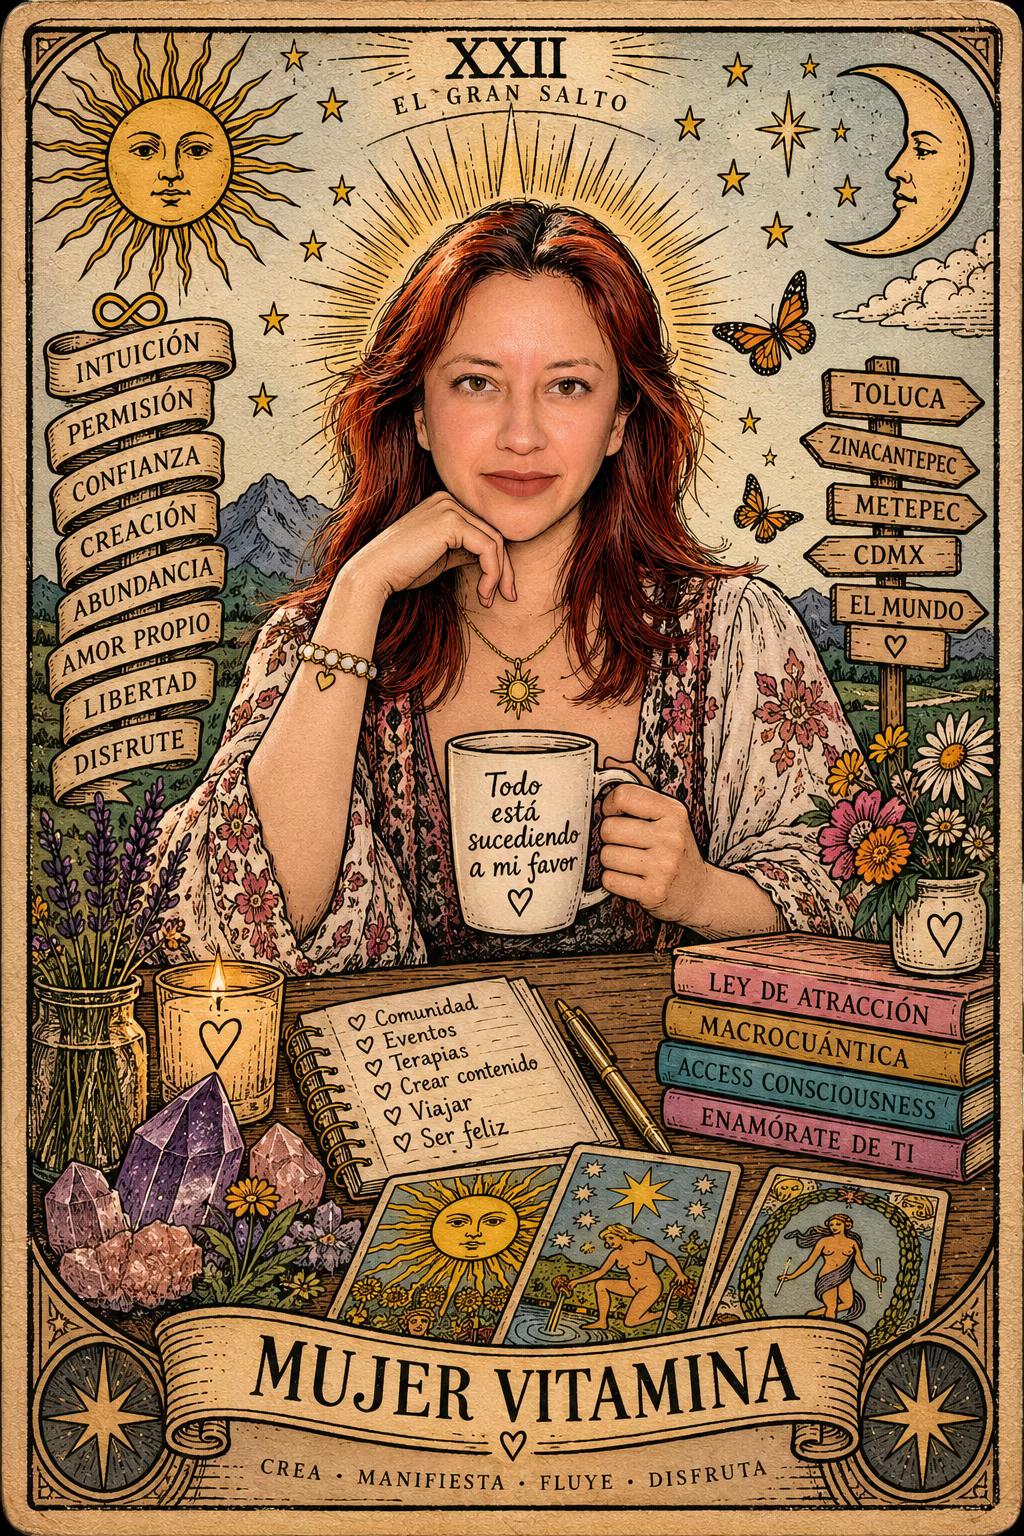 XXII
EL GRAN SALTO
INTUICIÓN
PERMISIÓN
CONFIANZA
CREACIÓN
ABUNDANCIA
AMOR PROPIO
LIBERTAD
DISFRUTE
TOLUCA
ZINACANTEPEC
METEPEC
CDMX
EL MUNDO
Todo
está
sucediendo
a mi favor
Comunidad
Eventos
Terapias
Crear contenido
Viajar
Ser feliz
LEY DE ATRACCIÓN
MACROCUÁNTICA
ACCESS CONSCIOUSNESS
ENAMÓRATE DE TI
MUJER VITAMINA
CREA · MANIFIESTA · FLUYE · DISFRUTA